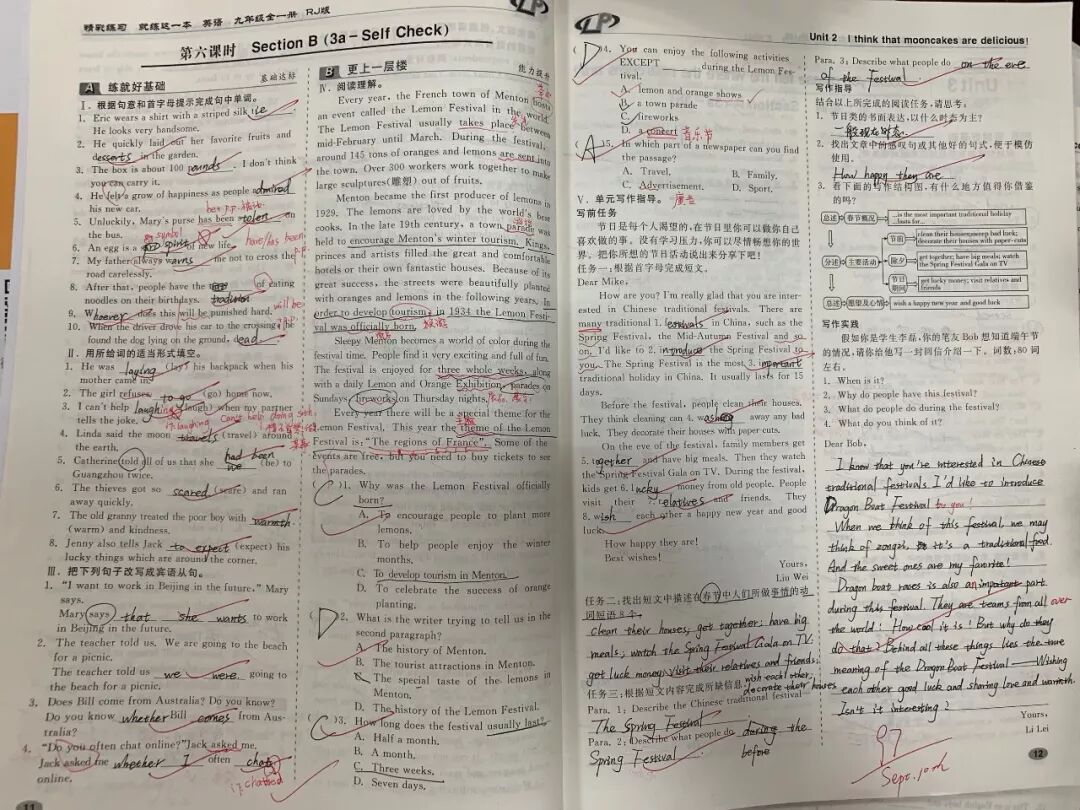 精彩练习 就练这一本 英语 九年级全一册 RJ版
第六课时 Section B (3a-Self Check)
A 练就好基础 基础达标
Ⅰ. 根据句意和首字母提示完成句中单词。
1. Eric wears a shirt with a striped silk tie.
He looks very handsome.
2. He quickly laid out her favorite fruits and
desserts in the garden.
3. The box is about 100 pounds. I don't think
you can carry it.
4. He felt a grow of happiness as people admired
his new car.
5. Unluckily, Mary's purse has been stolen on
the bus.
6. An egg is a symbol of new life.
7. My father always warns me not to cross the
road carelessly.
8. After that, people have the tradition of eating
noodles on their birthdays.
9. Whoever does this will be punished hard.
10. When the driver drove his car to the crossing, he
found the dog lying on the ground, dead.
Ⅱ. 用所给词的适当形式填空。
1. He was laying (lay) his backpack when his
mother came in.
2. The girl refuses to go (go) home now.
3. I can't help laughing (laugh) when my partner
tells the joke.
4. Linda said the moon travels (travel) around
the earth.
5. Catherine told all of us that she had been (be) to
Guangzhou twice.
6. The thieves got so scared (scare) and ran
away quickly.
7. The old granny treated the poor boy with warmth
(warm) and kindness.
8. Jenny also tells Jack to expect (expect) his
lucky things which are around the corner.
Ⅲ. 把下列句子改写成宾语从句。
1. "I want to work in Beijing in the future." Mary
says.
Mary says that she wants to work
in Beijing in the future.
2. The teacher told us. We are going to the beach
for a picnic.
The teacher told us we were going to
the beach for a picnic.
3. Does Bill come from Australia? Do you know?
Do you know whether Bill comes from Aus-
tralia?
4. "Do you often chat online?" Jack asked me.
Jack asked me whether I often chat
online.
chatted
11
B 更上一层楼 能力提升
Ⅳ. 阅读理解。
Every year, the French town of Menton hosts
an event called the Lemon Festival in the world.
The Lemon Festival usually takes place between
mid-February until March. During the festival,
around 145 tons of oranges and lemons are sent into
the town. Over 300 workers work together to make
large sculptures(雕塑) out of fruits.
Menton became the first producer of lemons in
1929. The lemons are loved by the world's best
cooks. In the late 19th century, a town parade was
held to encourage Menton's winter tourism. Kings,
princes and artists filled the great and comfortable
hotels or their own fantastic houses. Because of its
great success, the streets were beautifully planted
with oranges and lemons in the following years. In
order to develop tourism, in 1934 the Lemon Festi-
val was officially born.
Sleepy Menton becomes a world of color during the
festival time. People find it very exciting and full of fun.
The festival is enjoyed for three whole weeks, along
with a daily Lemon and Orange Exhibition, parades on
Sundays, fireworks on Thursday nights.
Every year there will be a special theme for the
Lemon Festival. This year the theme of the Lemon
Festival is: "The regions of France". Some of the
events are free, but you need to buy tickets to see
the parades.
(C)1. Why was the Lemon Festival officially
born?
A. To encourage people to plant more
lemons.
B. To help people enjoy the winter
months.
C. To develop tourism in Menton.
D. To celebrate the success of orange
planting.
(D)2. What is the writer trying to tell us in the
second paragraph?
A. The history of Menton.
B. The tourist attractions in Menton.
C. The special taste of the lemons in
Menton.
D. The history of the Lemon Festival.
(C)3. How long does the festival usually last?
A. Half a month.
B. A month.
C. Three weeks.
D. Seven days.
Unit 2 I think that mooncakes are delicious!
(D)4. You can enjoy the following activities
EXCEPT during the Lemon Fes-
tival.
A. lemon and orange shows
B. a town parade
C. fireworks
D. a concert 音乐节
(A)5. In which part of a newspaper can you find
the passage?
A. Travel. B. Family.
C. Advertisement. D. Sport.
广告
Ⅴ. 单元写作指导。
写前任务
节日是每个人渴望的,在节日里你可以做你自己
喜欢做的事。没有学习压力,你可以尽情畅想你的世
界。把你所想的节日活动说出来分享下吧!
任务一:根据首字母完成短文。
Dear Mike,
How are you? I'm really glad that you are inter-
ested in Chinese traditional festivals. There are
many traditional 1. festivals in China, such as the
Spring Festival, the Mid-Autumn Festival and so
on. I'd like to 2. introduce the Spring Festival to
you. The Spring Festival is the most 3. important
traditional holiday in China. It usually lasts for 15
days.
Before the festival, people clean their houses.
They think cleaning can 4. washing away any bad
luck. They decorate their houses with paper cuts.
On the eve of the festival, family members get
5. together and have big meals. Then they watch
the Spring Festival Gala on TV. During the festival,
kids get 6. lucky money from old people. People
visit their 7. relatives and friends. They
8. wish each other a happy new year and good
luck.
How happy they are!
Best wishes!
Yours,
Lin Wei
任务二:找出短文中描述在春节中人们所做事情的动
词短语8个。
clean their houses, get together, have big
meals, watch the Spring Festival Gala on TV,
get lucky money, visit their relatives and friends,
wish each other,
decorate their houses
任务三:根据短文内容完成所缺信息:
Para. 1: Describe the Chinese traditional festival
The Spring Festival
Para. 2: Describe what people do during the
before
Spring Festival
Para. 3: Describe what people do on the eve
of the Festival.
写作指导
结合以上所完成的阅读任务,请思考。
1. 节日类的书面表达,以什么时态为主?
一般现在时态
2. 找出文章中的感叹句或其他好的句式,便于模仿
使用。
How happy they are
3. 看下面的写作结构图,有什么地方值得你借鉴
的吗?
总述 春节概况 ...is the most important traditional holiday
lasts for...
分述 主要活动
节前 clean their houses; sweep bad luck;
decorate their houses with paper-cuts
除夕 get together; have big meals; watch
the Spring Festival Gala on TV
节日期间 get lucky money; visit relatives and
friends
总述 愿望及心情 wish a happy new year and good luck
写作实践
假如你是学生李磊,你的笔友 Bob 想知道端午节
的情况,请你给他写一封回信介绍一下。词数:80 词
左右。
1. When is it?
2. Why do people have this festival?
3. What do people do during the festival?
4. What do you think of it?
Dear Bob,
I know that you're interested in Chinese
traditional festivals I'd like to introduce
Dragon Boat Festival to you!
When we think of this festival, we may
think of zongzi, it's a traditional food.
And the sweet ones are my favorite!
Dragon boat races is also an important part
during this festival. They are teams from all over
the world! How cool it is! But why do they
do that? Behind all these things lies the true
meaning of the Dragon Boat Festival — Wishing
each other good luck and sharing love and warmth.
Isn't it interesting?
Yours,
Li Lei
97
Sept. 10th
12